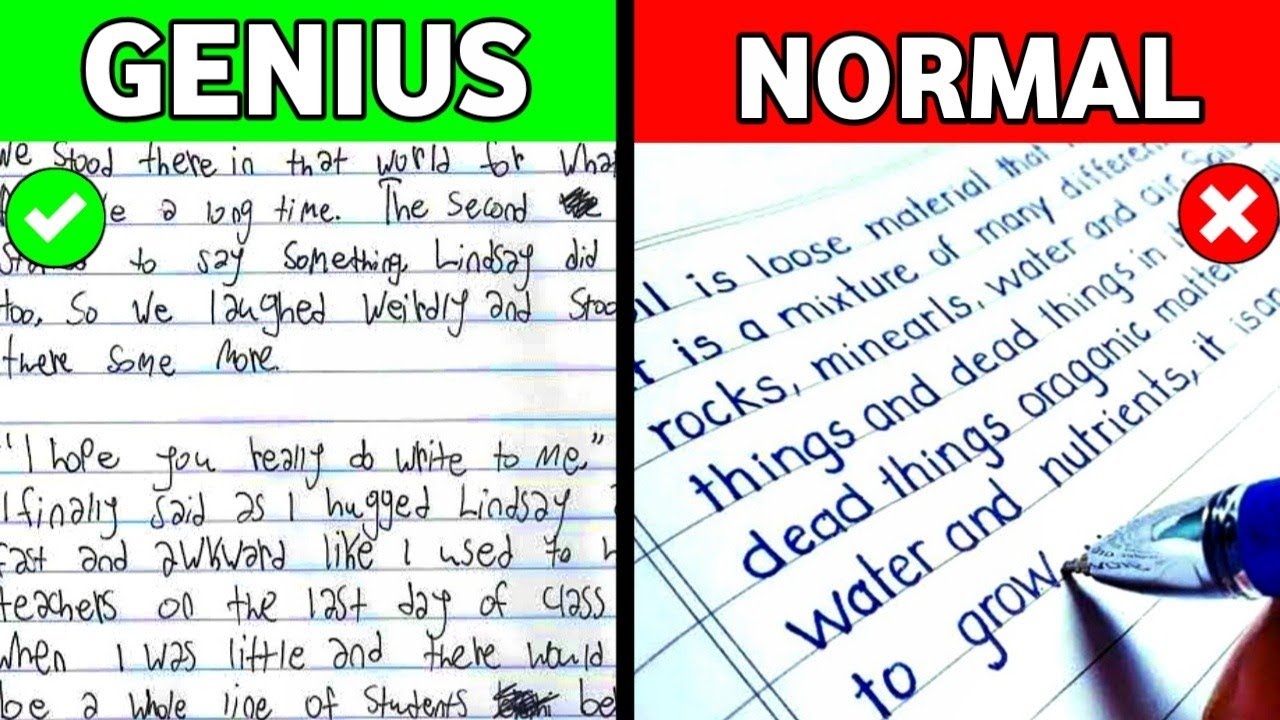 GENIUS
we stood there in that world for wha
e a long time. The second
to say something, Lindsay did
too, so we laughed weirdly and stoo
there some more.
"I hope you really do write to me,"
I finally said as I hugged Lindsay
fast and awkward like I used to h
teachers on the last day of class
when I was little and there would
be a whole line of students be
NORMAL
il is loose material that
t is a mixture of many differen
rocks, minearls, water and air. Soi
things and dead things in it
dead things oraganic matter
water and nutrients, it is an
to grow